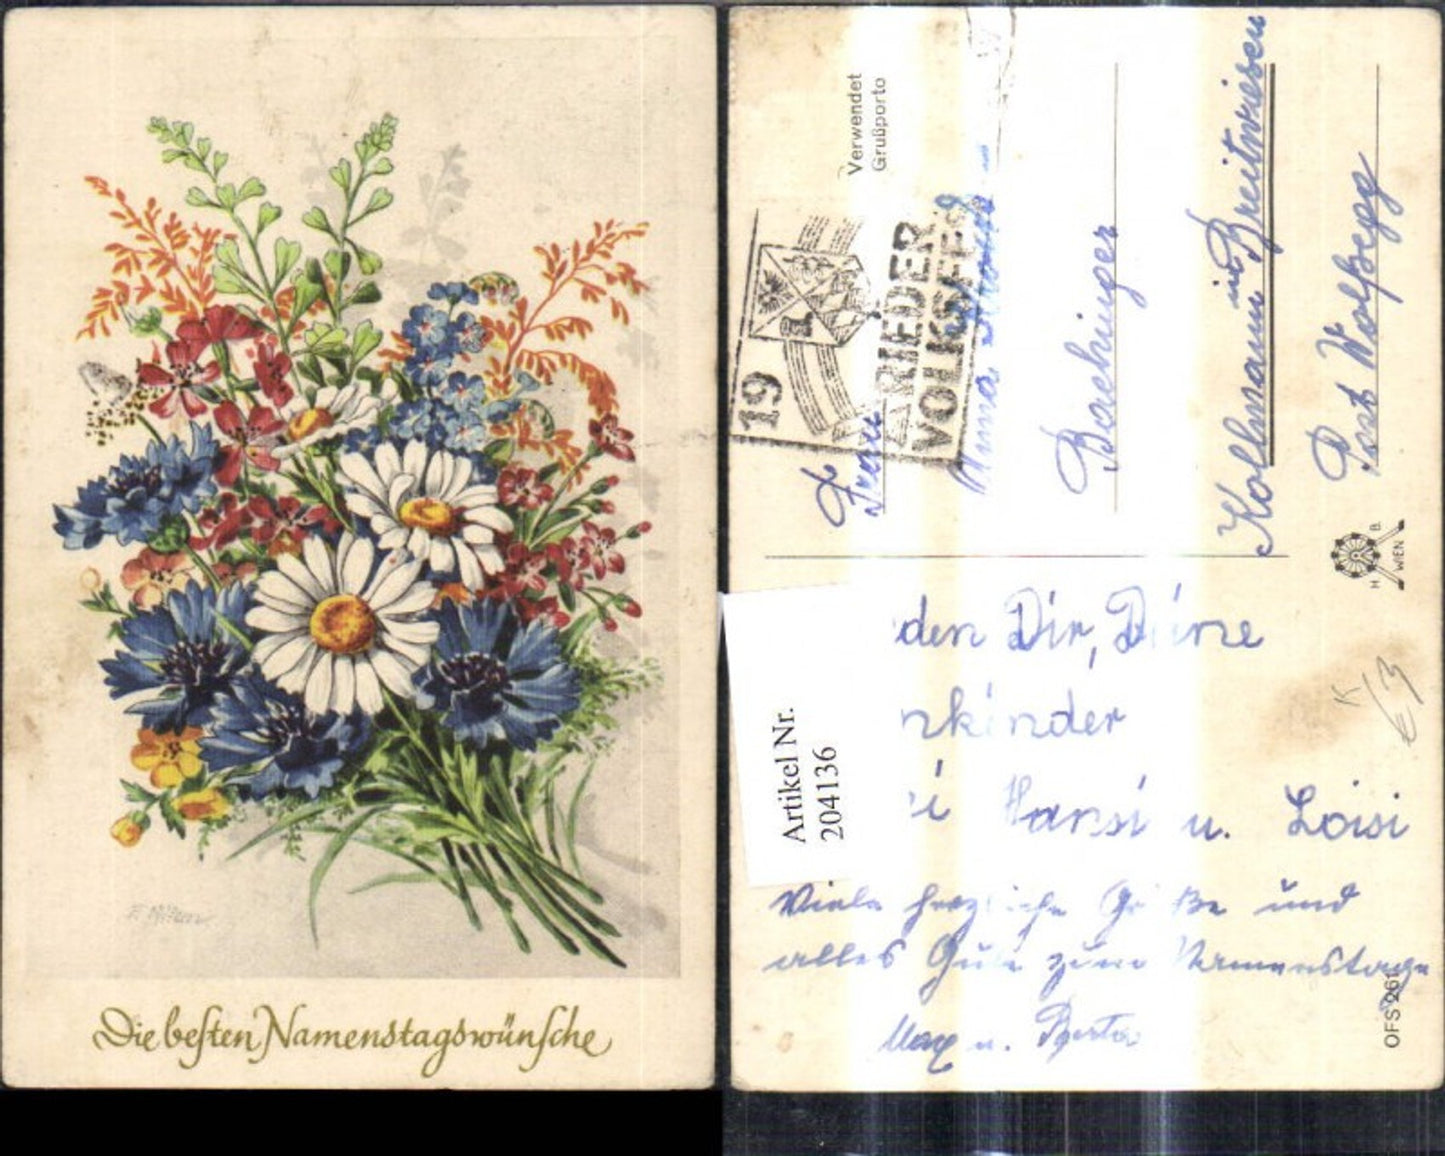 Die besten Namenstagswünsche
Verwendet
Grußporto
19
RIEDER
VOLKSFES
Frau
Anna
Bachinger
Kollmann in Breitwiesen
Post Wolfsegg
H. B.
WIEN
Artikel Nr.
204136
den Dir, Deine
nkinder
i Hansi u. Loisi
Viele herzliche Grüße und
alles Gute zum Namenstage
Max u. Berta
OFS 261
K
€3